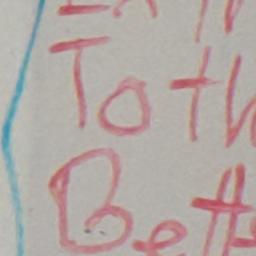 To th
Bett